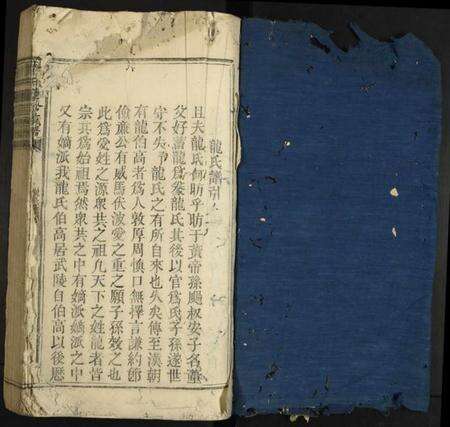 龍氏譜引
且夫龍氏何昉乎昉于黃帝孫颺叔安子名董
父好畜龍爲豢龍氏其後以官爲氏子孫遂世
守不失龍氏之有所自來也久矣傳至漢朝
有龍伯高者爲人敦厚周慎口無擇言謙約節
儉廉公有威馬伏波愛之重之願子孫效之也
此爲受姓之源衆共之祖凡天下之姓龍者皆
宗其爲始祖焉然衆共之中有嫡派嫡派之中
又有嫡派我龍氏伯高居武陵自伯高以後歷